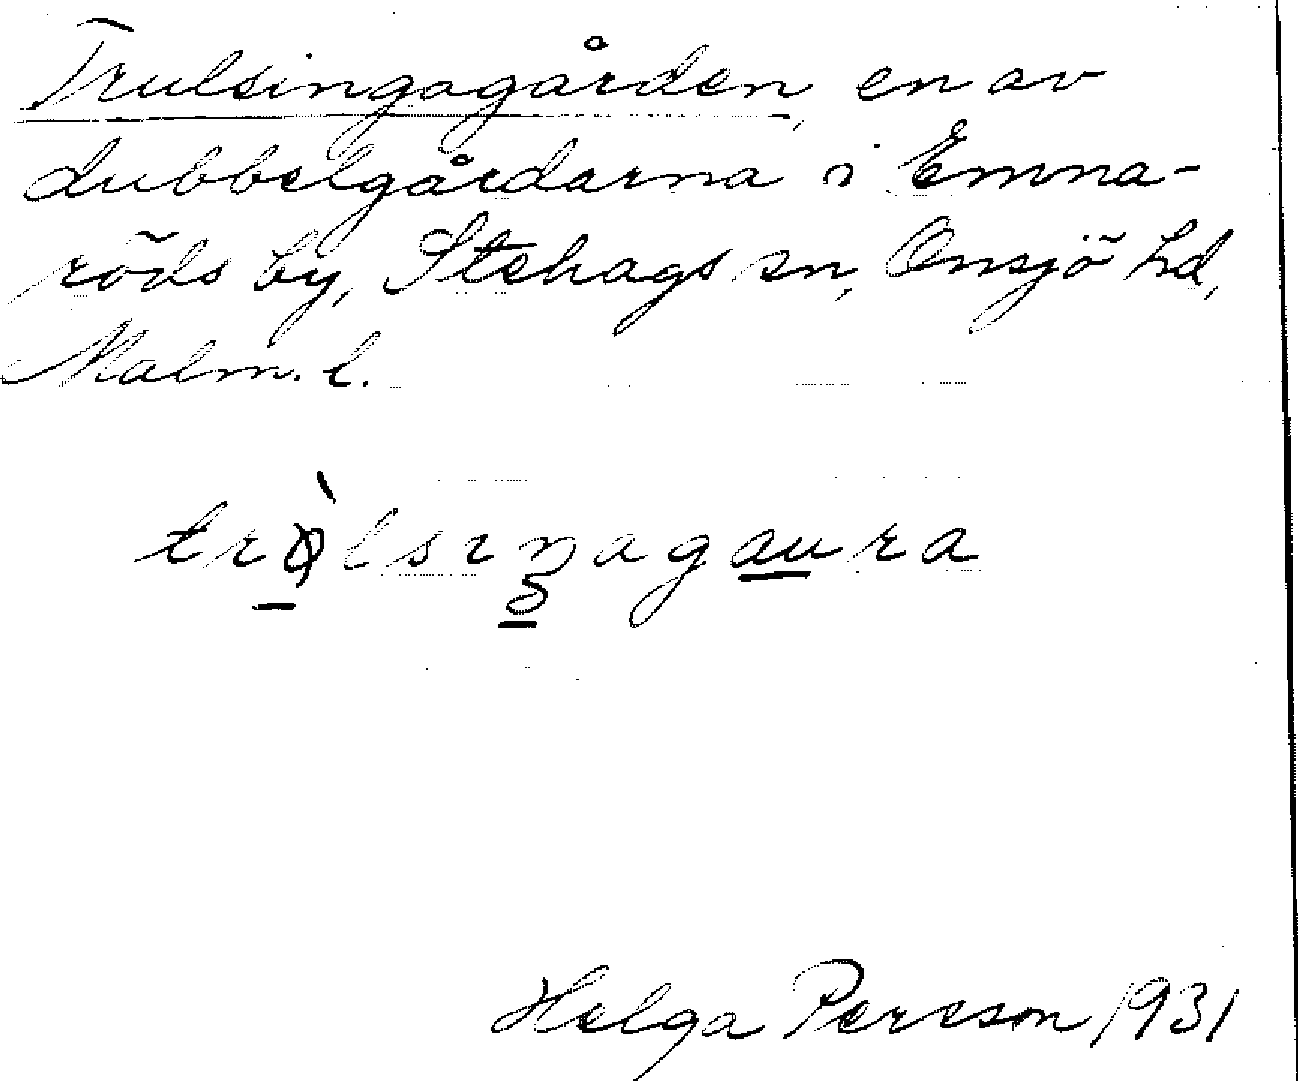 Trulsingagården, en av
dubbelgårdarna i Emma-
röds by, Stehags sn, Onsjö hd,
Malm. l.
Helga Persson 1931